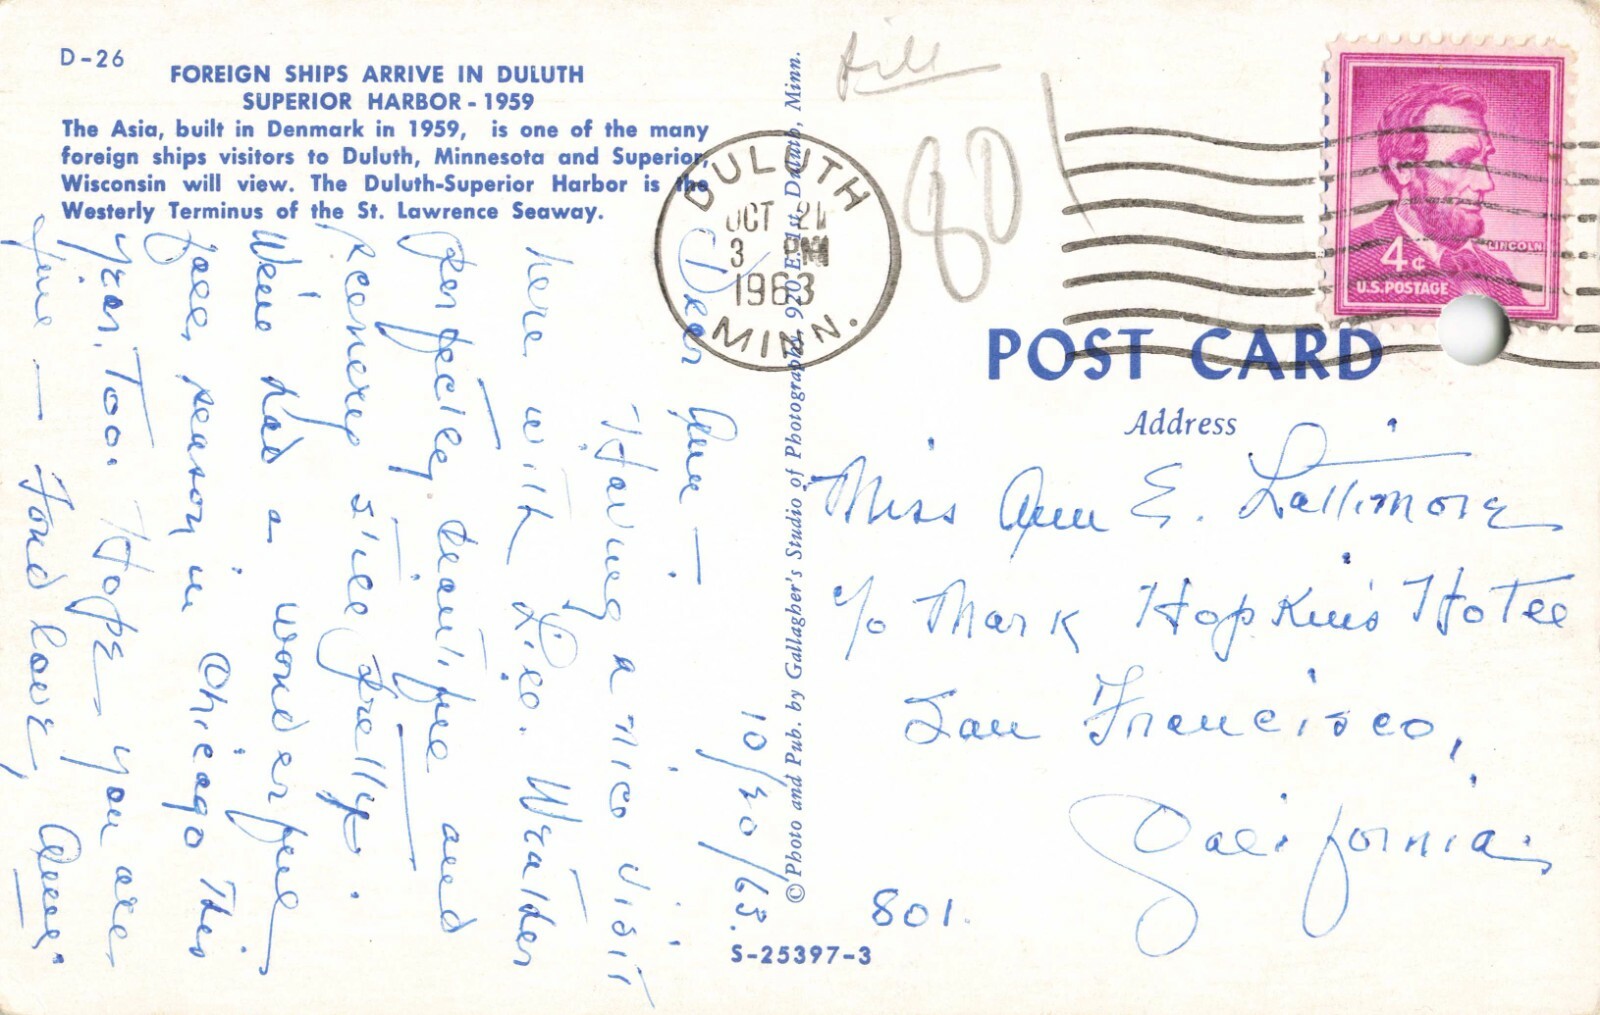 D-26
FOREIGN SHIPS ARRIVE IN DULUTH
SUPERIOR HARBOR - 1959
The Asia, built in Denmark in 1959, is one of the many
foreign ships visitors to Duluth, Minnesota and Superior,
Wisconsin will view. The Duluth-Superior Harbor is the
Westerly Terminus of the St. Lawrence Seaway.
10/20/63.
Dear Ann —
Having a nice visit
here with Lil. Weather
perfectly beautiful and
scenery still pretty.
We've had a wonderful
fall season in Chicago this
year, too. Hope you are
fine — Fond love,
©Photo and Pub. by Gallagher's Studio of Photography, 920 E. 1st, Duluth, Minn.
S-25397-3
DULUTH
OCT 21
3 PM
1963
MINN.
801
LINCOLN
4¢
U.S. POSTAGE
POST CARD
Address
Miss Ann E. Lattimore
c/o Mark Hopkins Hotel
San Francisco,
California.
801.